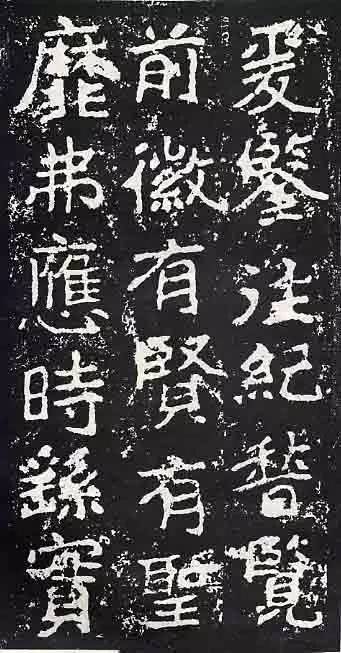 爰鑒往紀晢覽
前徽有賢有聖
靡弗應時繇實